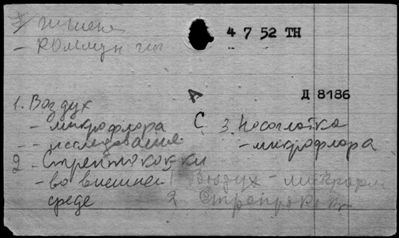 4 7 52 ТН
Д 8186
1. Воздух
- микрофлора
- исследования
2. Стрептококки
- во внешней
среде
С
3. Носоглотка
- микрофлора
1 Воздух - микрофл
2 Стрептокок